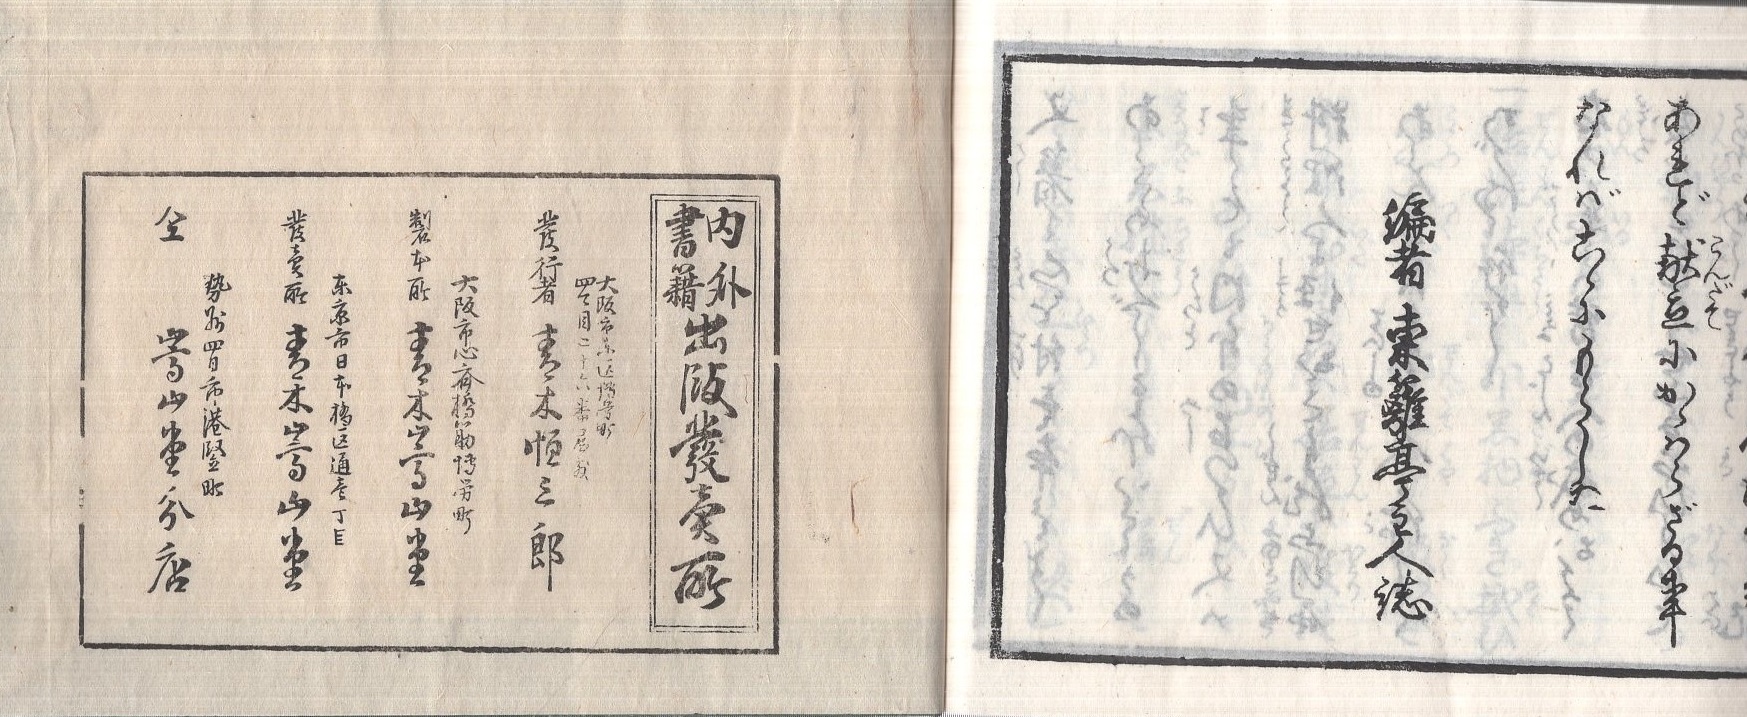 あれど献立にかゝはらざる事
こんだて
なればこゝにもらした
編者 東籬亭主人誌
内外書籍出版發賣所
大阪市東区博労町
四丁目二十六番屋敷
發行者 青木恒三郎
大阪市心斎橋筋博労町
製本所 青木嵩山堂
東京市日本橋区通壱丁目
發賣所 青木嵩山堂
勢州四日市港竪町
仝 嵩山堂分店